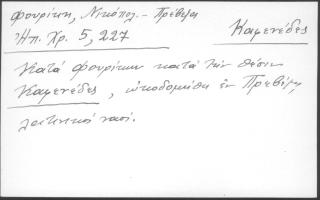 Φουρίκη, Νικόπολ. - Πρέβεζα
Ἠπ. Χρ. 5, 227
Καμενέδες
Κατά Φουρίκην κατά τήν θέσιν
Καμενέδες, ὠκοδομήθη ἐν Πρεβέζῃ
λατινικοί ναοί.